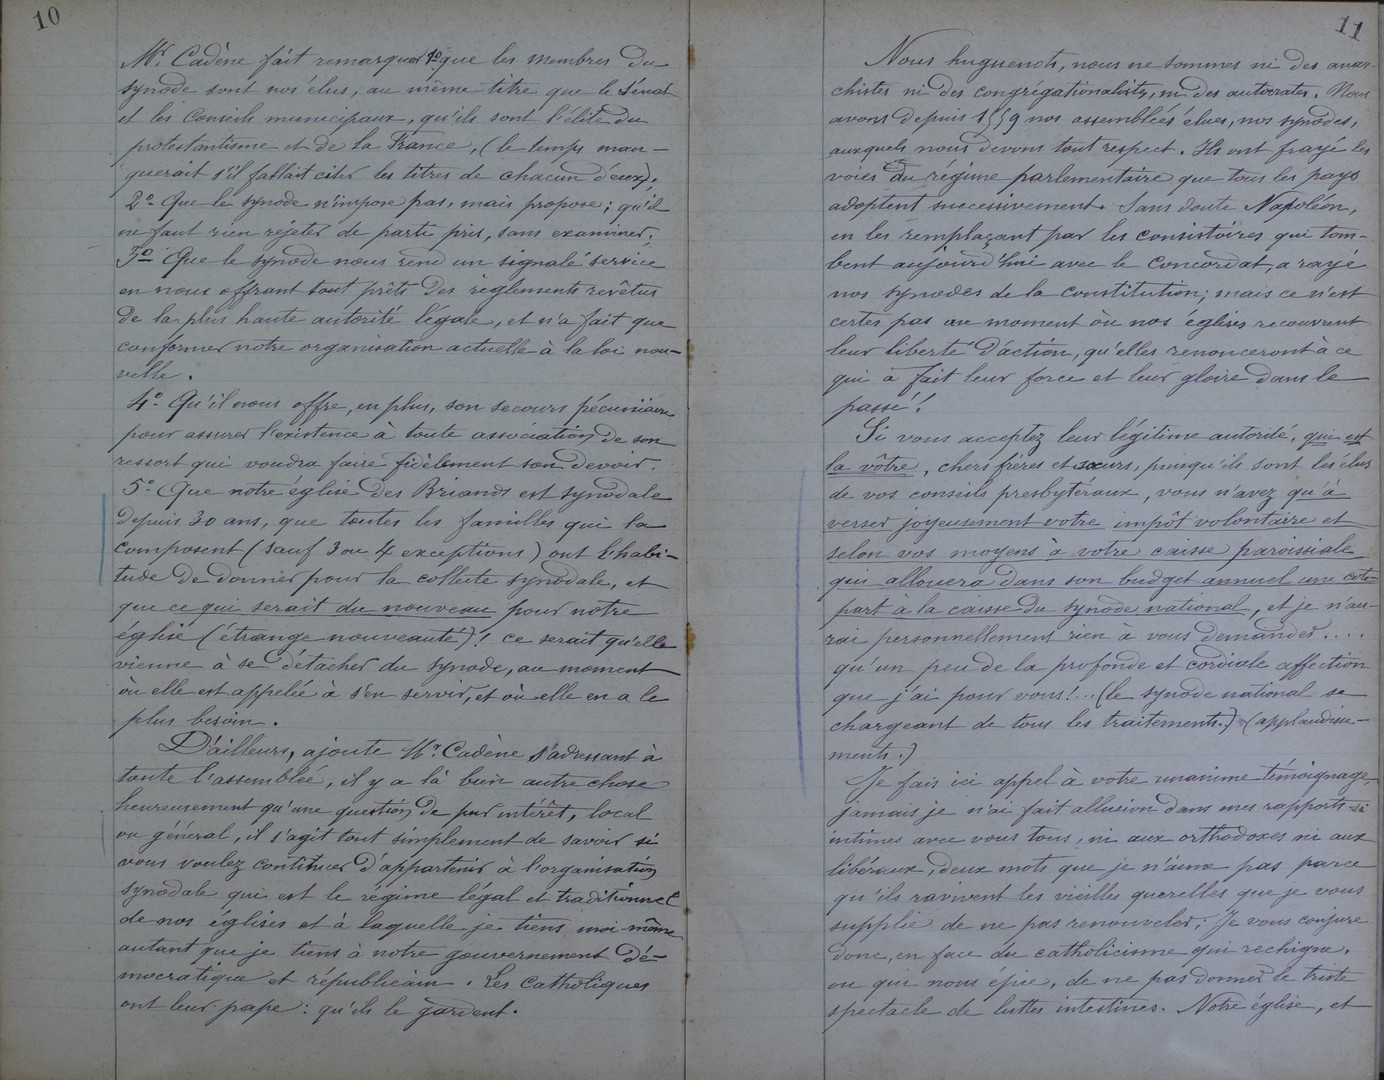 10
Mr. Cadène fait remarquer 1º que les membres du
synode sont nos élus, au même titre que le Sénat
et les Conseils municipaux, qu'ils sont l'élite du
protestantisme et de la France, (le temps man-
querait s'il fallait citer les titres de chacun d'eux);
2º Que le synode n'impose pas, mais propose; qu'il
ne faut rien rejeter de parti pris, sans examiner;
3º Que le synode nous rend un signalé service
en nous offrant tout prêts des règlements revêtus
de la plus haute autorité légale, et n'a fait que
conformer notre organisation actuelle à la loi nou-
velle.
4º Qu'il nous offre, en plus, son secours pécuniaire
pour assurer l'existence à toute association de son
ressort qui voudra faire fidèlement son devoir.
5º Que notre église des Briands est synodale
depuis 30 ans, que toutes les familles qui la
composent (sauf 3 ou 4 exceptions) ont l'habi-
tude de donner pour la collecte synodale, et
que ce qui serait du nouveau pour notre
église (étrange nouveauté)! ce serait qu'elle
vienne à se détacher du synode, au moment
où elle est appelée à s'en servir, et où elle en a le
plus besoin.
D'ailleurs, ajoute Mr Cadène s'adressant à
toute l'assemblée, il y a là bien autre chose
heureusement qu'une question de pur intérêt, local
ou général, il s'agit tout simplement de savoir si
vous voulez continuer d'appartenir à l'organisation
synodale qui est le régime légal et traditionnel
de nos églises et à laquelle je tiens moi-même
autant que je tiens à notre gouvernement dé-
mocratique et républicain. Les Catholiques
ont leur pape: qu'ils le gardent.
11
Nous huguenots, nous ne sommes ni des anar-
chistes ni des congrégationalistes, ni des autocrates. Nous
avons depuis 1559 nos assemblées élues, nos synodes,
auxquels nous devons tout respect. Ils ont frayé les
voies au régime parlementaire que tous les pays
adoptent successivement. Sans doute Napoléon,
en les remplaçant par les consistoires qui tom-
bent aujourd'hui avec le Concordat, a rayé
nos synodes de la constitution; mais ce n'est
certes pas au moment où nos églises recouvrent
leur liberté d'action, qu'elles renonceront à ce
qui a fait leur force et leur gloire dans le
passé!
Si vous acceptez leur légitime autorité, qui est
la vôtre, chers frères et sœurs, puisqu'ils sont les élus
de vos conseils presbytéraux, vous n'avez qu'à
verser joyeusement votre impôt volontaire et
selon vos moyens à votre caisse paroissiale
qui allouera dans son budget annuel une cote-
part à la caisse du synode national, et je n'au-
rai personnellement rien à vous demander....
qu'un peu de la profonde et cordiale affection
que j'ai pour vous!... (le synode national se
chargeant de tous les traitements.) (applaudisse-
ments.)
Je fais ici appel à votre unanime témoignage,
jamais je n'ai fait allusion dans mes rapports si
intimes avec vous tous, ni aux orthodoxes ni aux
libéraux, deux mots que je n'aime pas parce
qu'ils ravivent les vieilles querelles que je vous
supplie de ne pas renouveler. Je vous conjure
donc, en face du catholicisme qui rechigne,
ou qui nous épie, de ne pas donner le triste
spectacle de luttes intestines. Notre église, et